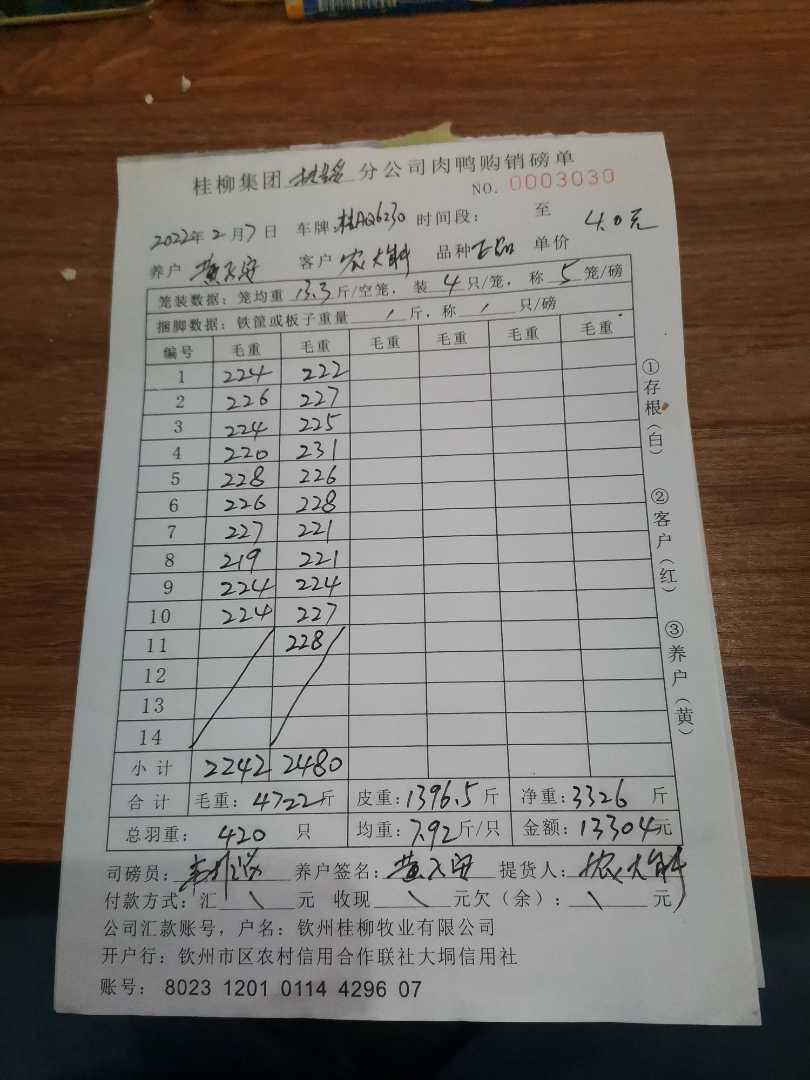 桂柳集团 分公司肉鸭购销磅单
NO. 0003030
2022年2月7日 车牌:桂AQ6230 时间段: 至 4.0元
养户 黄 客户 农大 品种 单价
笼装数据:笼均重 13.3 斤/空笼,装 4 只/笼,称 5 笼/磅
捆脚数据:铁筐或板子重量 / 斤,称 / 只/磅
编号 毛重 毛重 毛重 毛重 毛重 毛重
1 224 222
2 226 227
3 224 225
4 220 231
5 228 226
6 226 228
7 227 221
8 219 221
9 224 224
10 224 227
11 228
12
13
14
小计 2242 2480
合计 毛重:4722斤 皮重:1396.5斤 净重:3326斤
总羽重: 420 只 均重:7.92斤/只 金额:13304元
司磅员: 养户签名:黄 提货人:农大
付款方式:汇 \ 元 收现 \ 元欠(余): \ 元
公司汇款账号,户名:钦州桂柳牧业有限公司
开户行:钦州市区农村信用合作联社大垌信用社
账号: 8023 1201 0114 4296 07
①存根(白)
②客户(红)
③养户(黄)